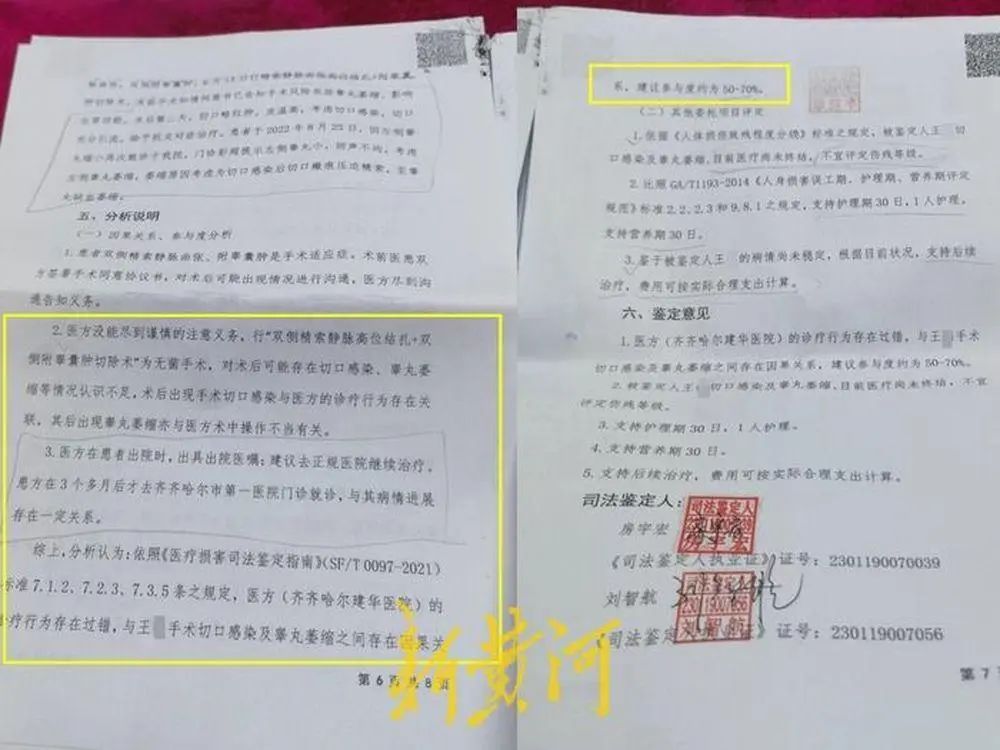 生育功能,术后第二天,切口略红肿,皮温高,考虑切口感染,
充分引流、给予抗炎对症治疗。患者于2022年8月25日,因左侧睾
丸缩小再次就诊于我院,门诊彩超提示左侧睾丸小,回声不均,考虑
左侧睾丸萎缩,萎缩原因考虑为切口感染后切口瘢痕压迫精索,至睾
丸缺血萎缩。
五、分析说明
(一)因果关系、参与度分析
1.患者双侧精索静脉曲张、附睾囊肿是手术适应症,术前医患双
方签署手术同意协议书,对术后可能出现情况进行沟通,医方尽到沟
通告知义务。
2.医方没能尽到谨慎的注意义务,行“双侧精索静脉高位结扎+双
侧附睾囊肿切除术”为无菌手术,对术后可能存在切口感染、睾丸萎
缩等情况认识不足,术后出现手术切口感染与医方的诊疗行为存在关
联,其后出现睾丸萎缩亦与医方术中操作不当有关。
3.医方在患者出院时,出具出院医嘱:建议去正规医院继续治疗,
患方在3个多月后才去齐齐哈尔市第一医院门诊就诊,与其病情进展
存在一定关系。
综上,分析认为:依照《医疗损害司法鉴定指南》(SF/T 0097-2021)
标准7.1.2、7.2.3、7.3.5条之规定,医方(齐齐哈尔建华医院)的
诊疗行为存在过错,与王 手术切口感染及睾丸萎缩之间存在因果关
第 6 页 共 8 页
系,建议参与度约为50-70%。
(二)其他委托项目评定
1.依据《人体损伤致残程度分级》标准之规定,被鉴定人王 切
口感染及睾丸萎缩,目前医疗尚未终结,不宜评定伤残等级。
2.比照GA/T1193-2014《人身损害误工期、护理期、营养期评定
规范》标准2.2、2.3和9.8.1之规定,支持护理期30日,1人护理,
支持营养期30日。
3.鉴于被鉴定人王 的病情尚未稳定,根据目前状况,支持后续
治疗,费用可按实际合理支出计算。
六、鉴定意见
1.医方(齐齐哈尔建华医院)的诊疗行为存在过错,与王 手术
切口感染及睾丸萎缩之间存在因果关系,建议参与度约为50-70%。
2.被鉴定人王 切口感染及睾丸萎缩,目前医疗尚未终结,不宜
评定伤残等级。
3.支持护理期30日,1人护理。
4.支持营养期30日。
5.支持后续治疗,费用可按实际合理支出计算。
司法鉴定人:
房宇宏
《司法鉴定人执业证》证号:230119076039
刘智航
《司法鉴定人执业证》证号:230119007056
第 7
新黄河